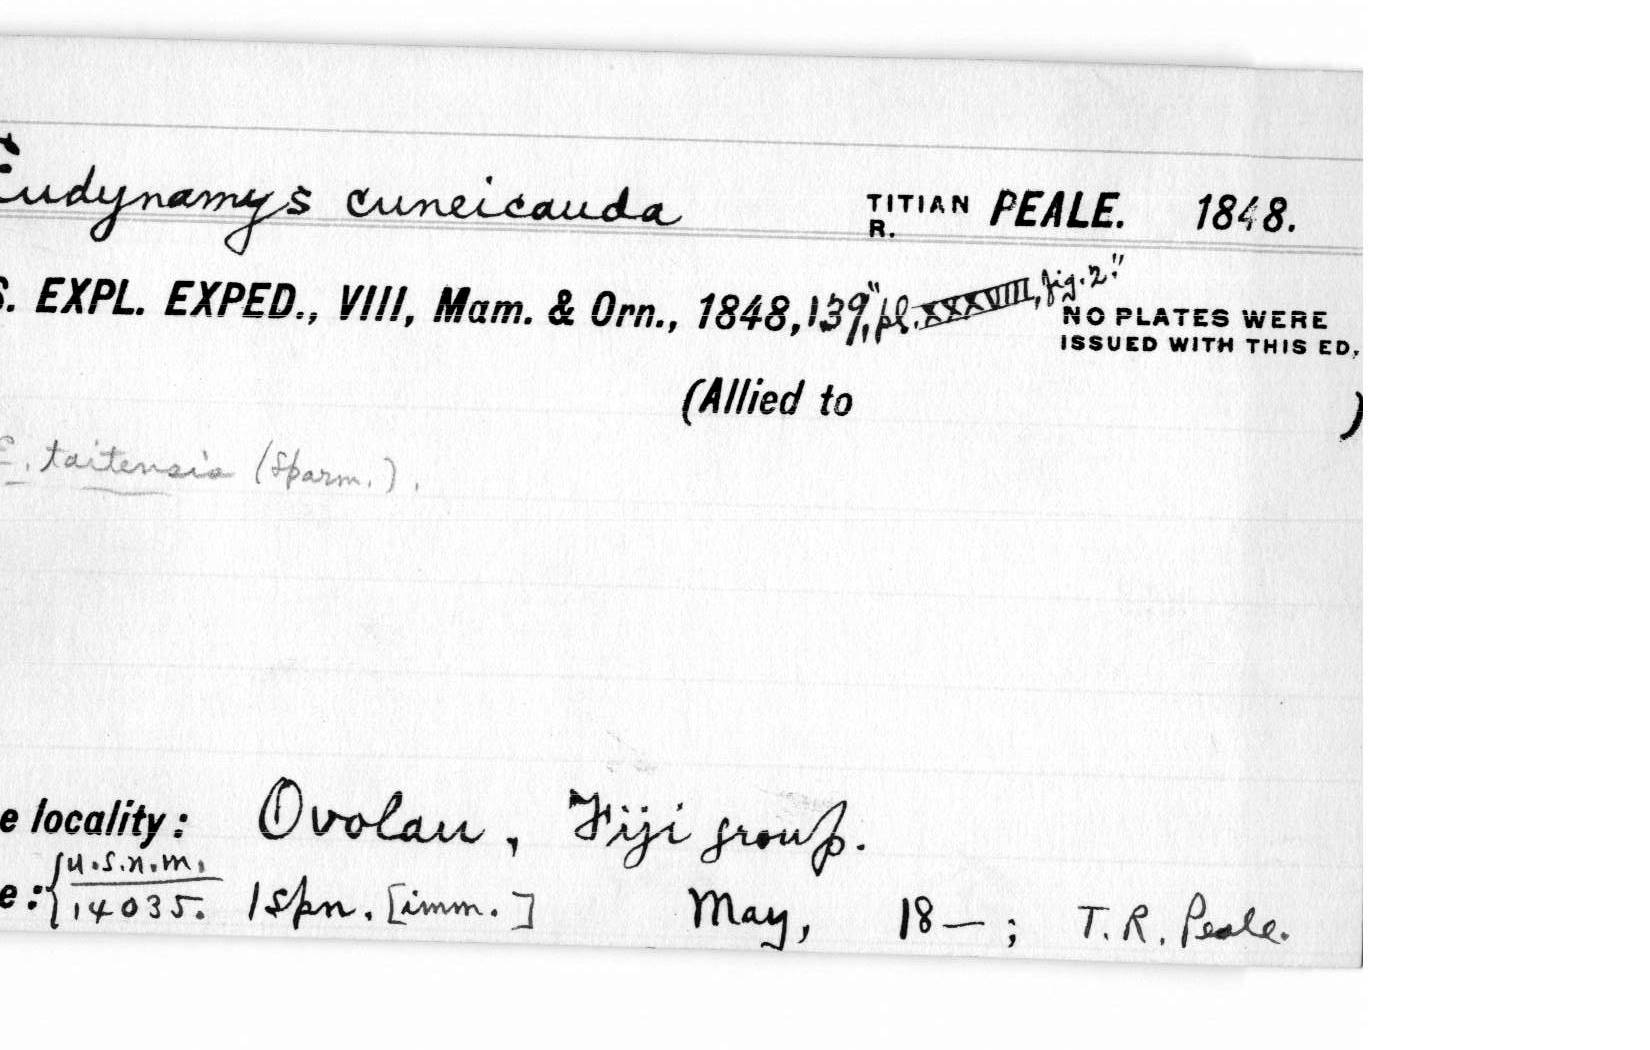 Eudynamys cuneicauda TITIAN R. PEALE. 1848.
S. EXPL. EXPED., VIII, Mam. & Orn., 1848, 139, "pl. XXXVIII, fig. 2."
NO PLATES WERE
ISSUED WITH THIS ED,
(Allied to )
E. taitensis (Sparm.).
e locality: Ovolau, Fiji group.
e: { U.S.N.M. 14035. 1 spn. [imm.] May, 18—; T. R. Peale.